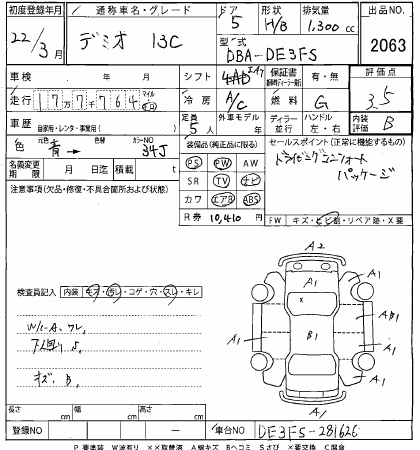 初度登録年月 通称車名・グレード ドア 形状 排気量 出品NO.
22/3月 デミオ 13C 5 H/B 1,300cc 2063
型式
DBA-DE3FS
車検 年 月 シフト 保証書 有・無 評価点
走行 177764 冷房 A/C 燃料 G 3.5
車歴 自家用・レンタ・事業用( ) 定員 5人 外車モデル 年 ディーラー 並行 ハンドル 左・右 内装評価 B
色 元色 青→ 色替 カラーNO 34J 装備品(純正品に限る) セールスポイント(正常に機能するもの)
名義変更期限 月 日迄 積載 t PS PW AW ドライビングコンフォート
注意事項(欠品・修復・不具合箇所および状態) SR TV ナビ パッケージ
カワ エアB ABS
R券 10,410円 FW キズ・ヒビ割・リペア跡・X要
A2
検査員記入 内装 キズ・汚レ・コゲ・穴・スレ・キレ
A1 A1
A1 B1 AB1
A1 A1
W/-A、ワレ,
下廻りS,
キズ、B,
A1
長さ cm 幅 cm 高さ cm
登録NO ー 車台NO DE3FS-281626
P要塗装 W波有り XX取替済 A線キズ Bヘコミ Sさび X要交換 C腐食